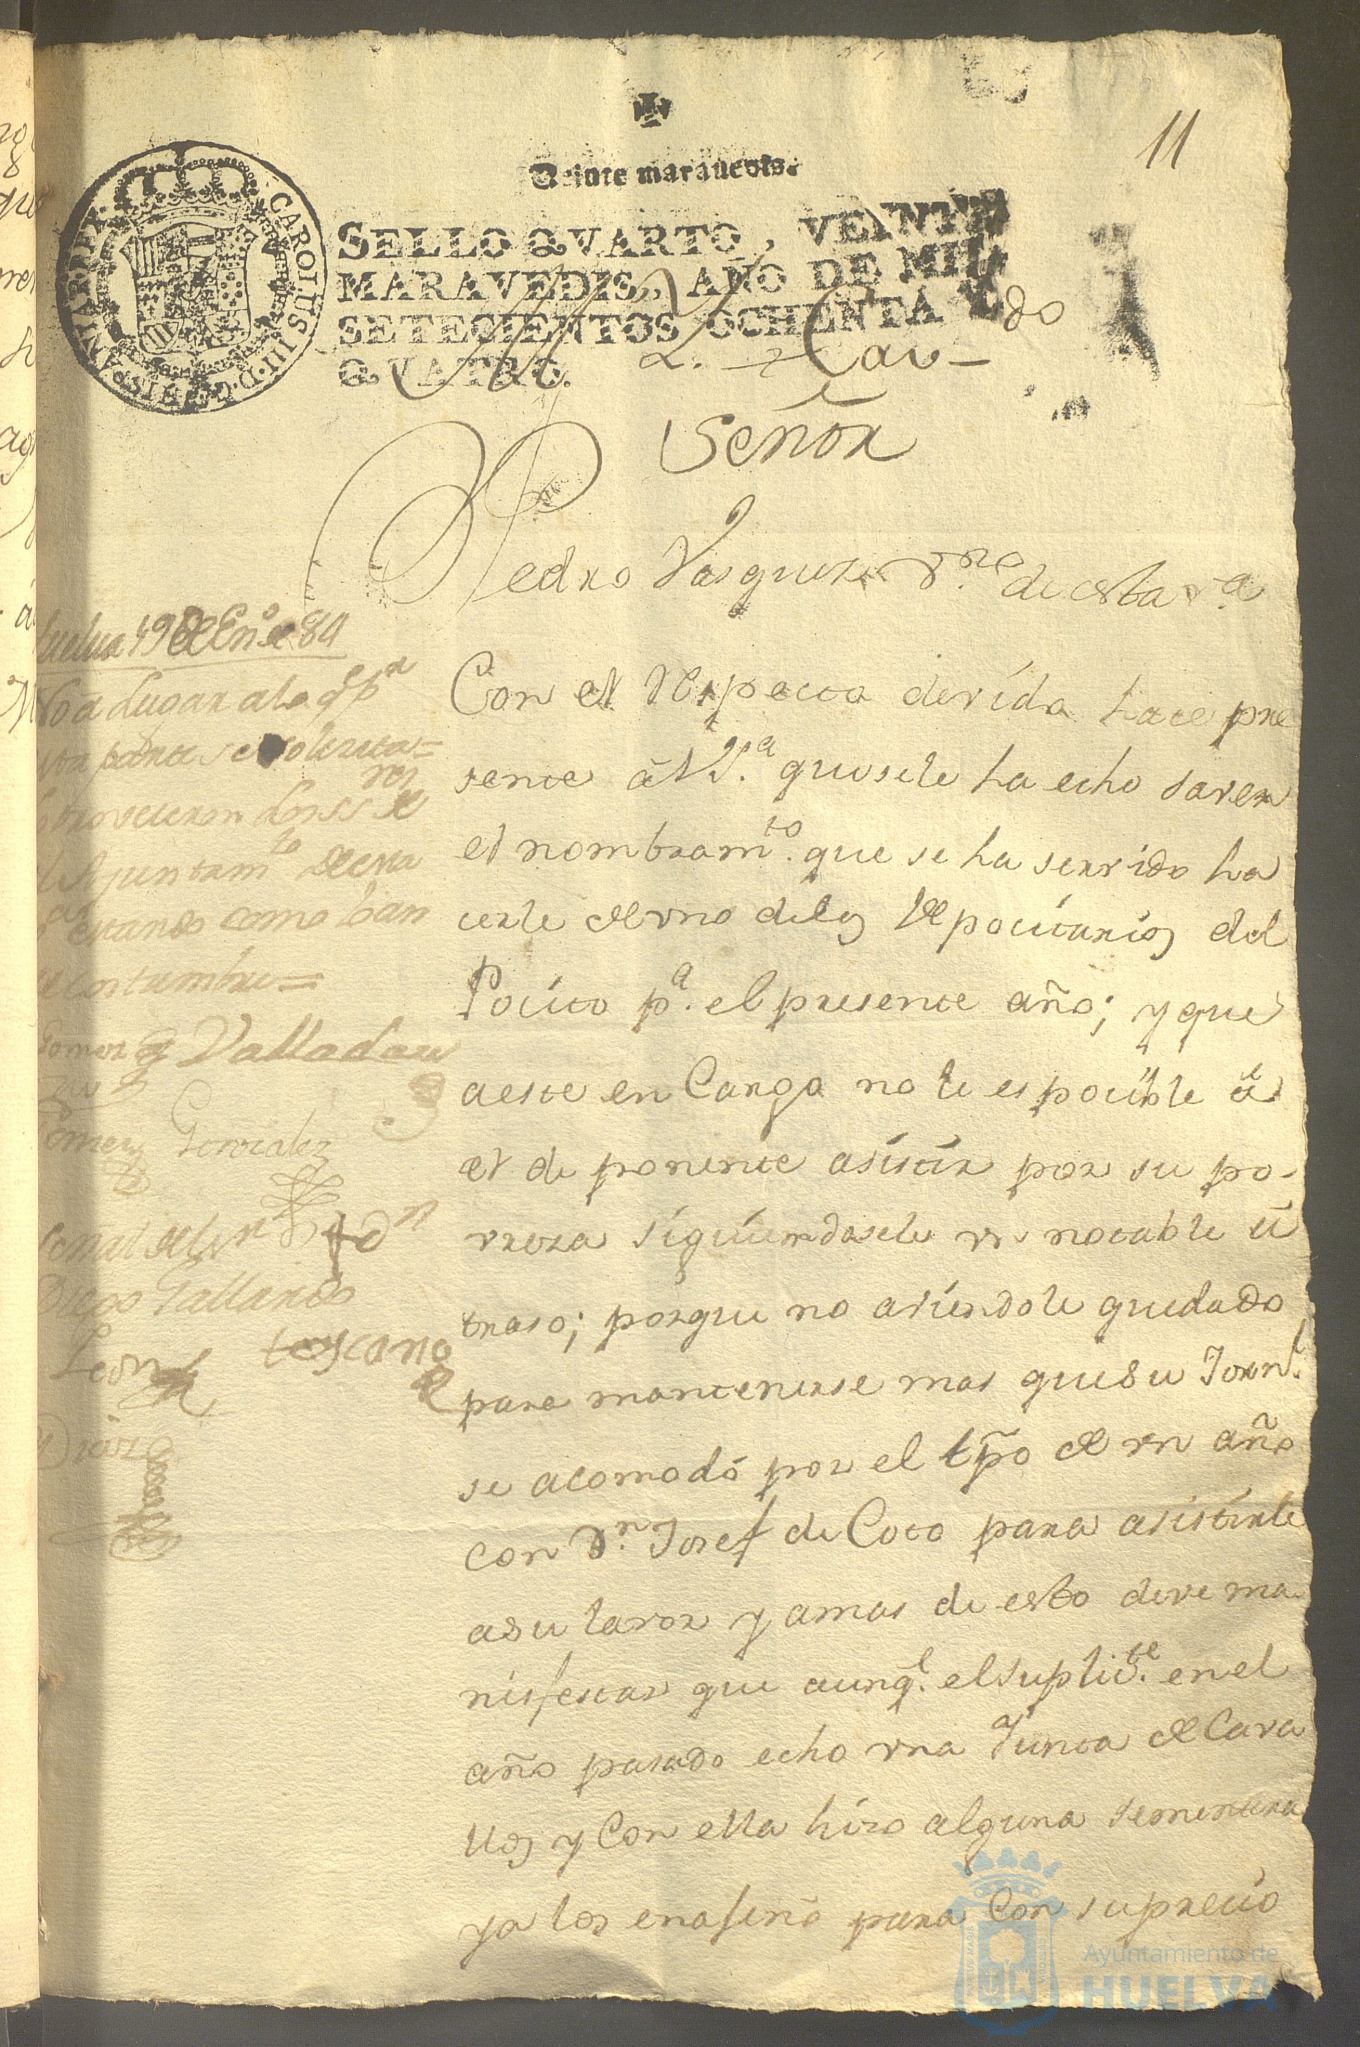 11
Veinte maravedis.
SELLO QVARTO, VEINTE
MARAVEDIS, AÑO DE MIL
SETECIENTOS OCHENTA Y
QVATRO.
CAROLUS III D. G. HISPANIAR. REX
Cav-do
Señor
Pedro Vasquez vno de esta va
Con el respecto devido hace pre
sente á V.S.a que se le ha echo saver
el nombramto. que se ha servido ha
cerle de vno de los Depocitarios del
Pocito pa. el presente año; y que
a este en Cargo no le es pocible
el de ponente asistir por su po-
vreza siguiendosele vn notable a
traso; porque no aviendole quedado
para mantenerse mas que su Jornl.
se acomodó por el tpo de vn año
con Dn. Josef de Coto para asistirle
a su lavor y amas de esto deve ma-
nisfestar que aunql. el suplicte. en el
año pasado echo vna Junta de Cava
llos y Con ella hizo alguna sementera
ya los enageno para Con su precio
Huelva 19 de Eno de 84
No á Lugar a lo qe
parte se solicita=
lo proveieron los SS.res de
el Ajuntamto de esta
estando como han
de costumbre=
Gomez Valladares
Gomez Gonzalez
señal del Sr + Dn
Diego Gallardo
Leon toscano
Diaz
Ayuntamiento de
HUELVA